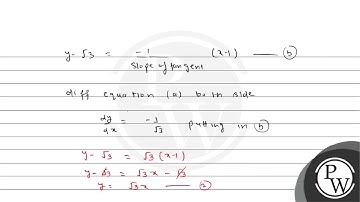 y-√3 = -1/slope of tangent (x-1) — (b)
diff equation (a) both side
dy/dx = -1/√3 putting in (b)
y-√3 = √3(x-1)
y-√3 = √3x-√3
y= √3x — (2)
PW